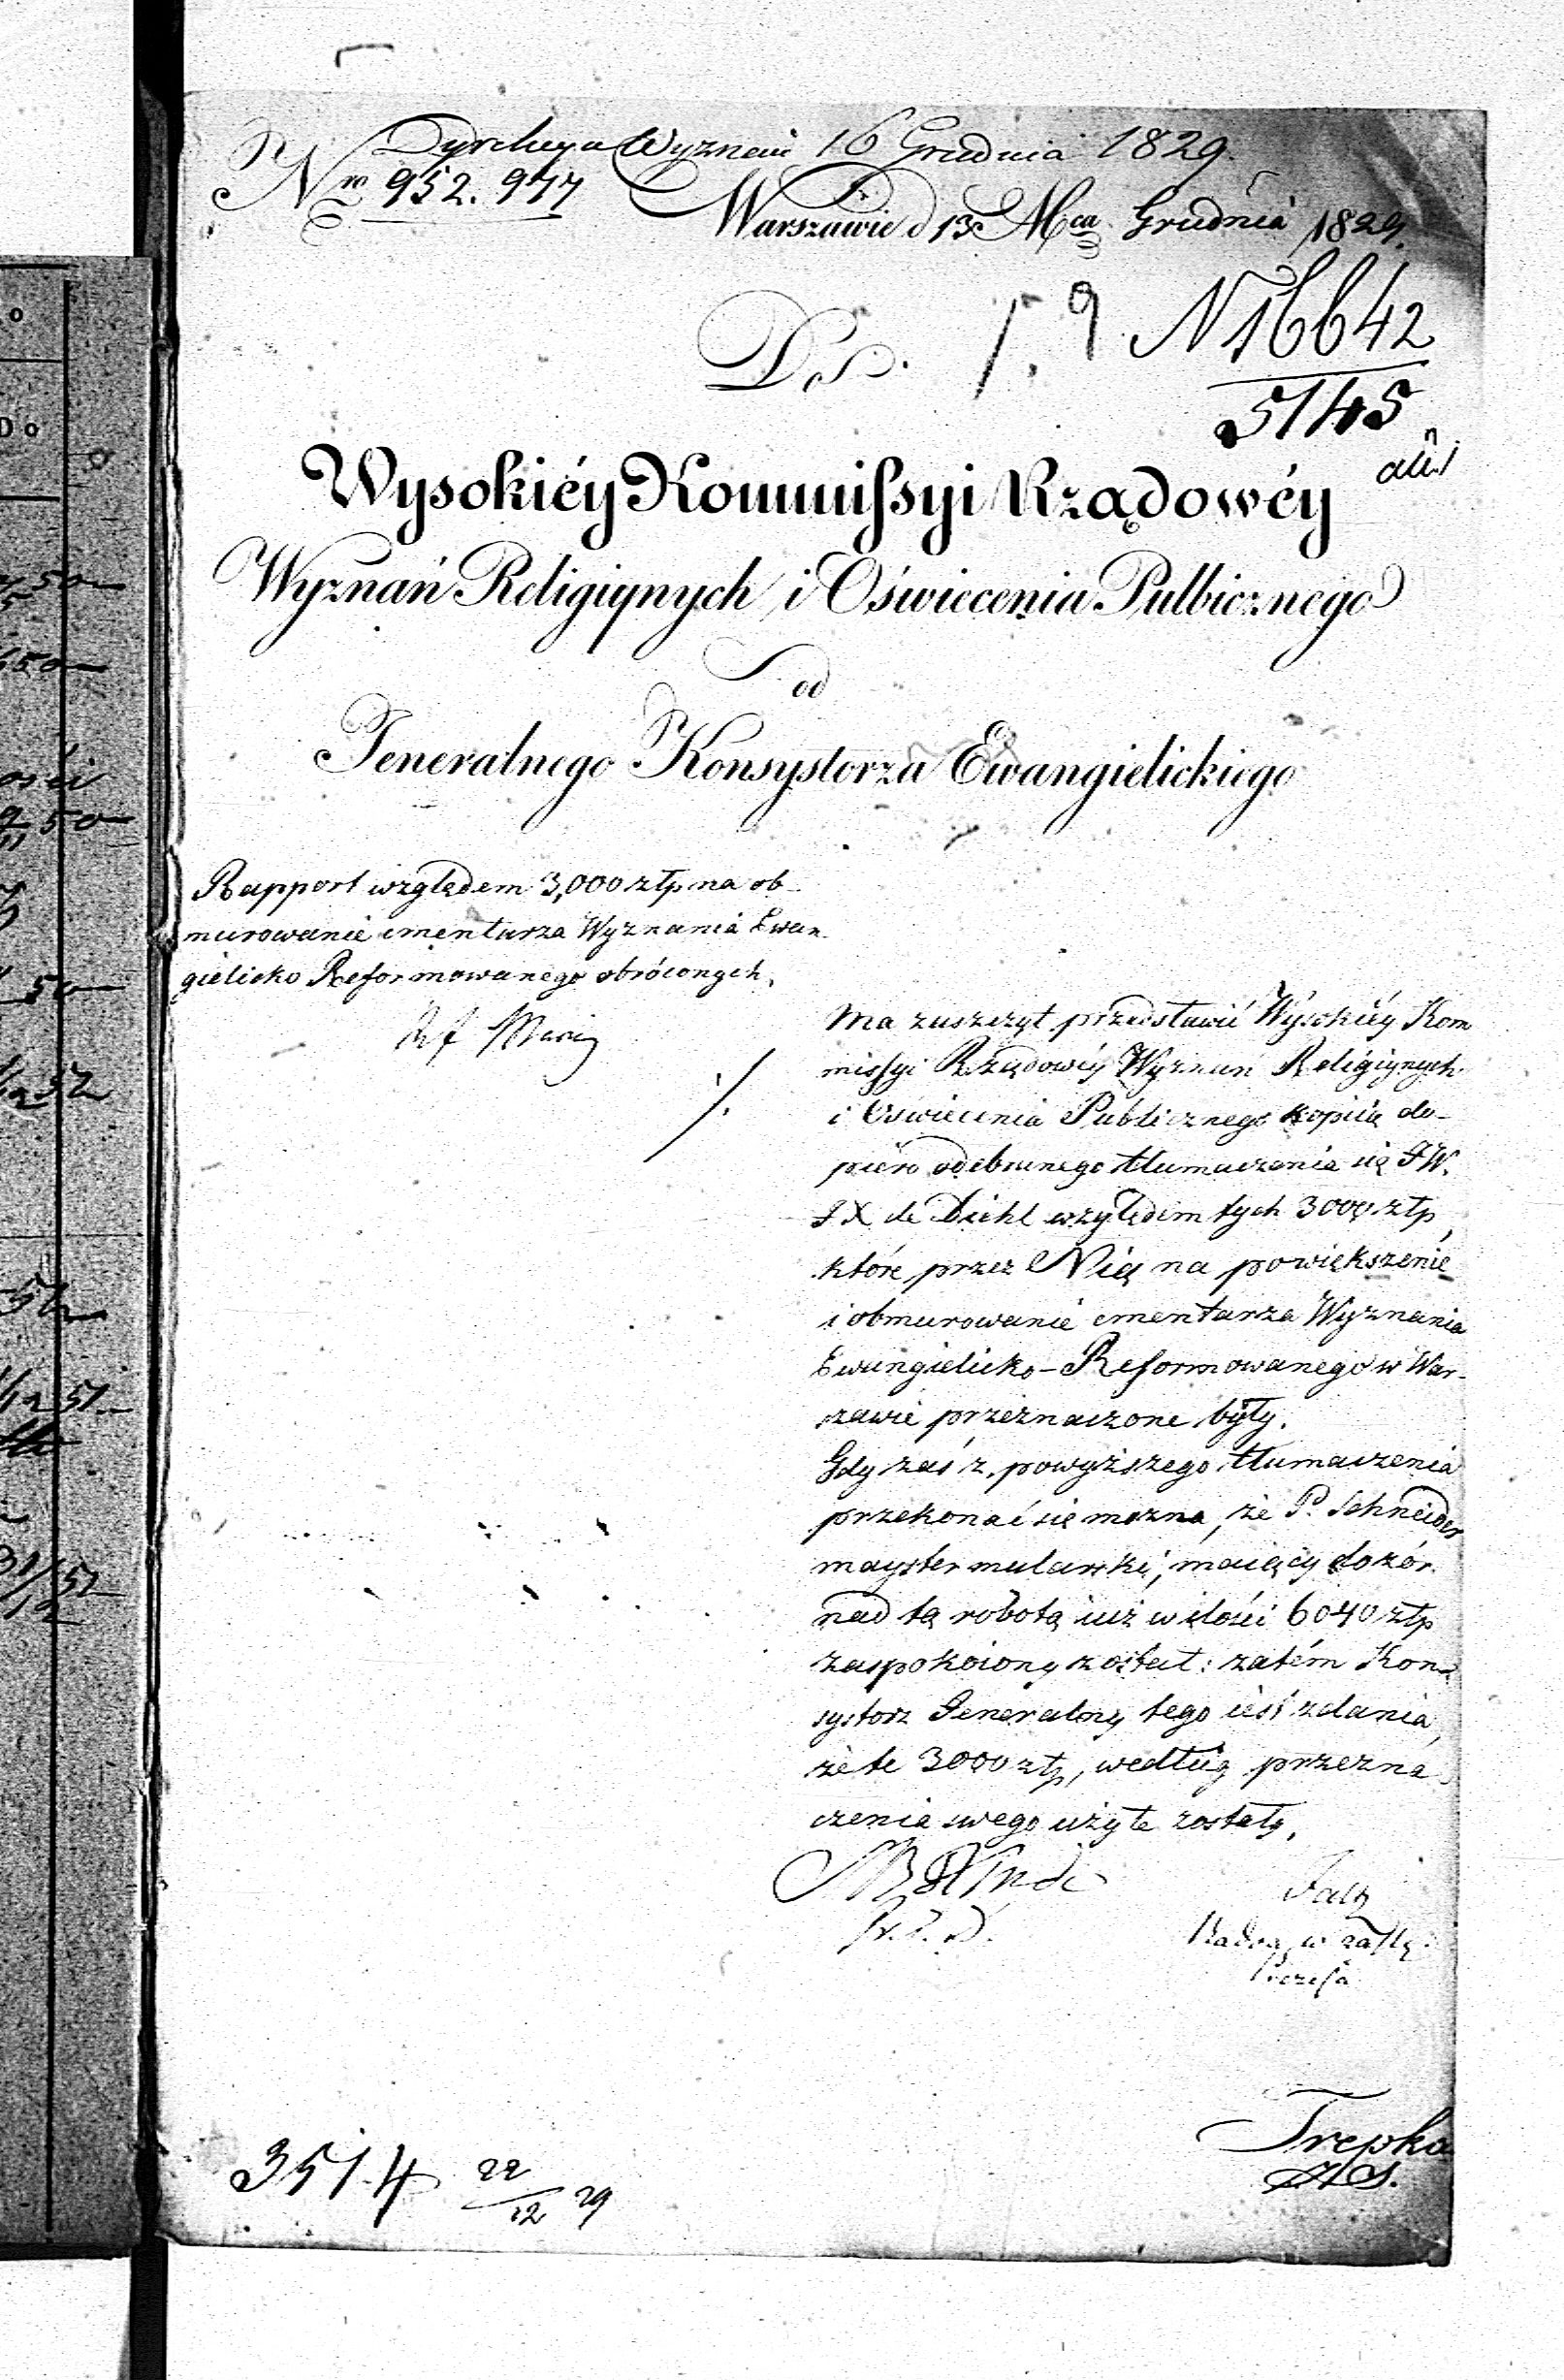 Dyrekcya Wyznań 16 Grudnia 1829.
Nro 952. 977
w Warszawie d 13 Mca Grudnia 1829.
Do.
N 16642
5145
Wysokiéy Kommissyi Rządowéy
Wyznań Religiynych i Oświecenia Pulbicznego
od
Jeneralnego Konsystorza Ewangielickiego
Rapport względem 3,000 złp na ob-
murowanie cmentarza Wyznania Ewan-
gielicko Reformowanego obróconych.
Ma zaszczyt przedstawić Wysokiéy Kom
missyi Rządowéy Wyznań Religiynych
i Oswiecenia Publicznego kopiią do-
piéro odebranego tłumaczenia się JW.
JX de Diehl względem tych 3000 złp,
które przez Nią na powiększenie
i obmurowanie cmentarza Wyznania
Ewangielicko-Reformowanego w War-
szawie przeznaczone były.
Gdy zaś z powyższego tłumaczenia
przekonać się można, że P. Schneider
mayster mularski, maiący dozór
nad tą robotą iuż w ilości 6040 złp
zaspokoiony został: zatém Kon-
systorz Jeneralny tego iest zdania,
że te 3000 złp, według przezna-
czenia swego użyte zostały.
Radca w zastę.
Prezesa
Trepka
3514 22/12 29